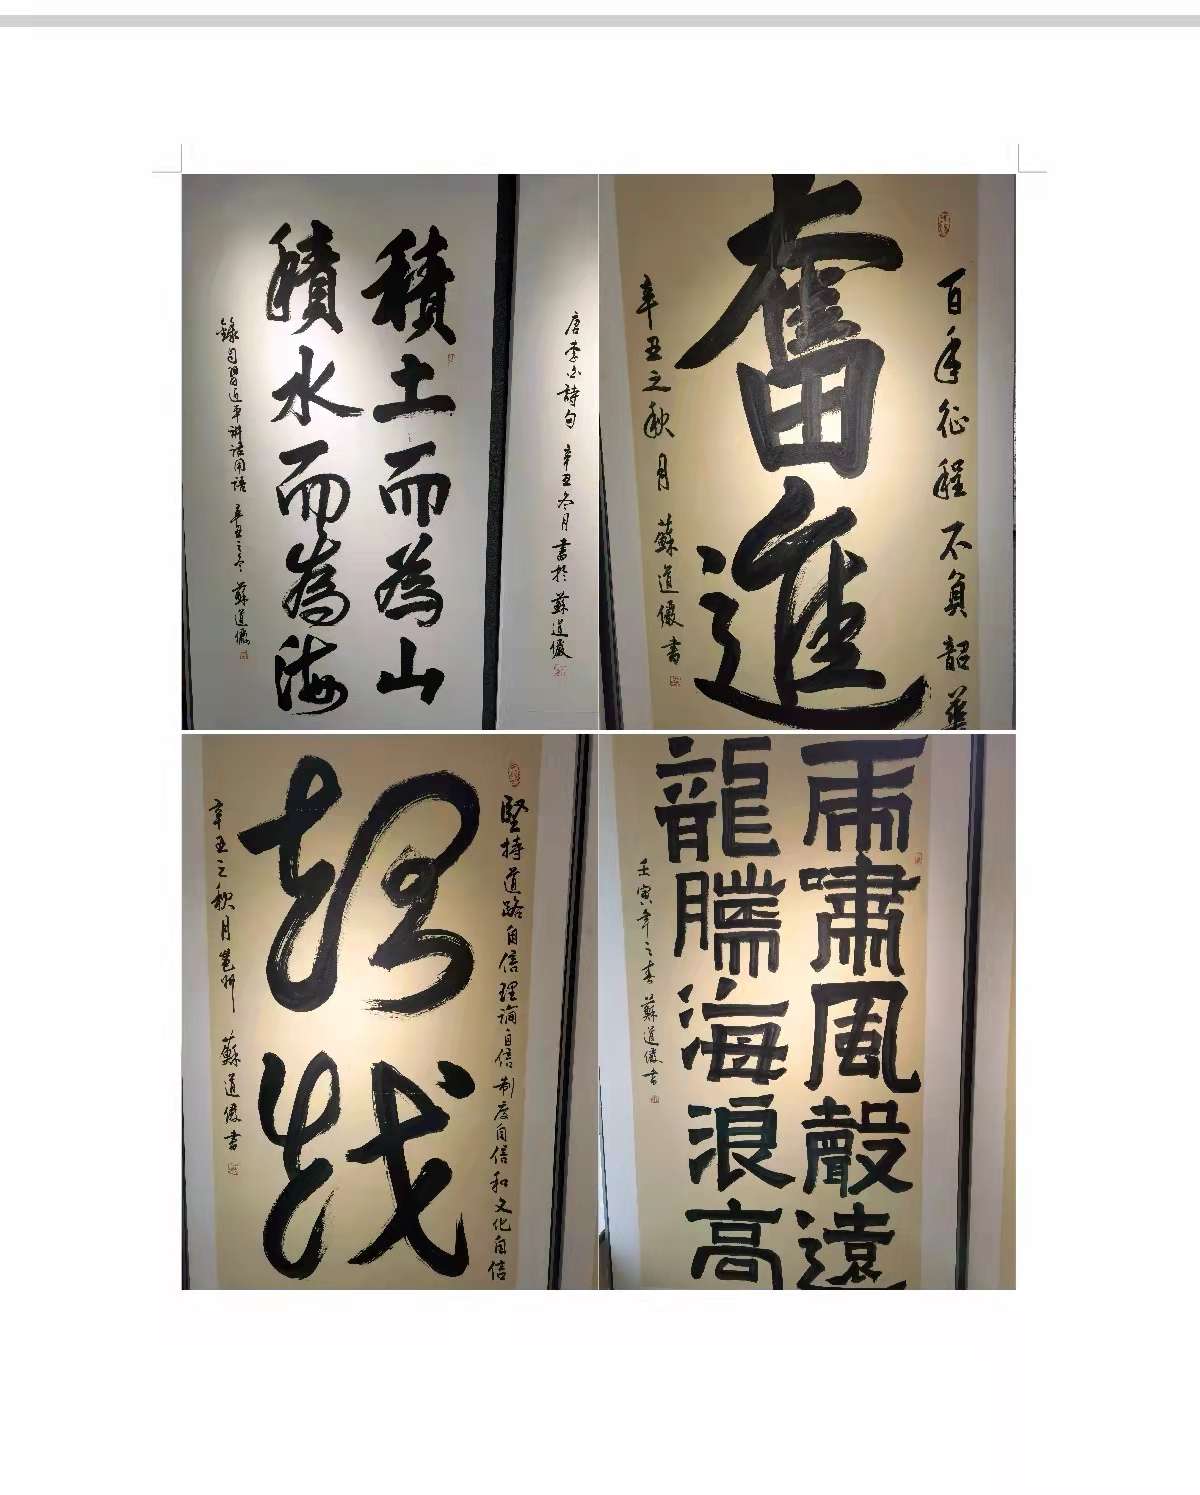 唐李白詩句 辛丑冬月書於 蘇道儼
積土而為山
積水而為海
錄自習近平讲话用語 辛丑之冬 蘇道儼
百年征程不負韶華
奮進
辛丑之秋月 蘇道儼書
堅持道路自信理論自信制度自信和文化自信
超越
辛丑之秋月邕州 蘇道儼書
虎嘯風聲遠
龍騰海浪高
壬寅年之春 蘇道儼書